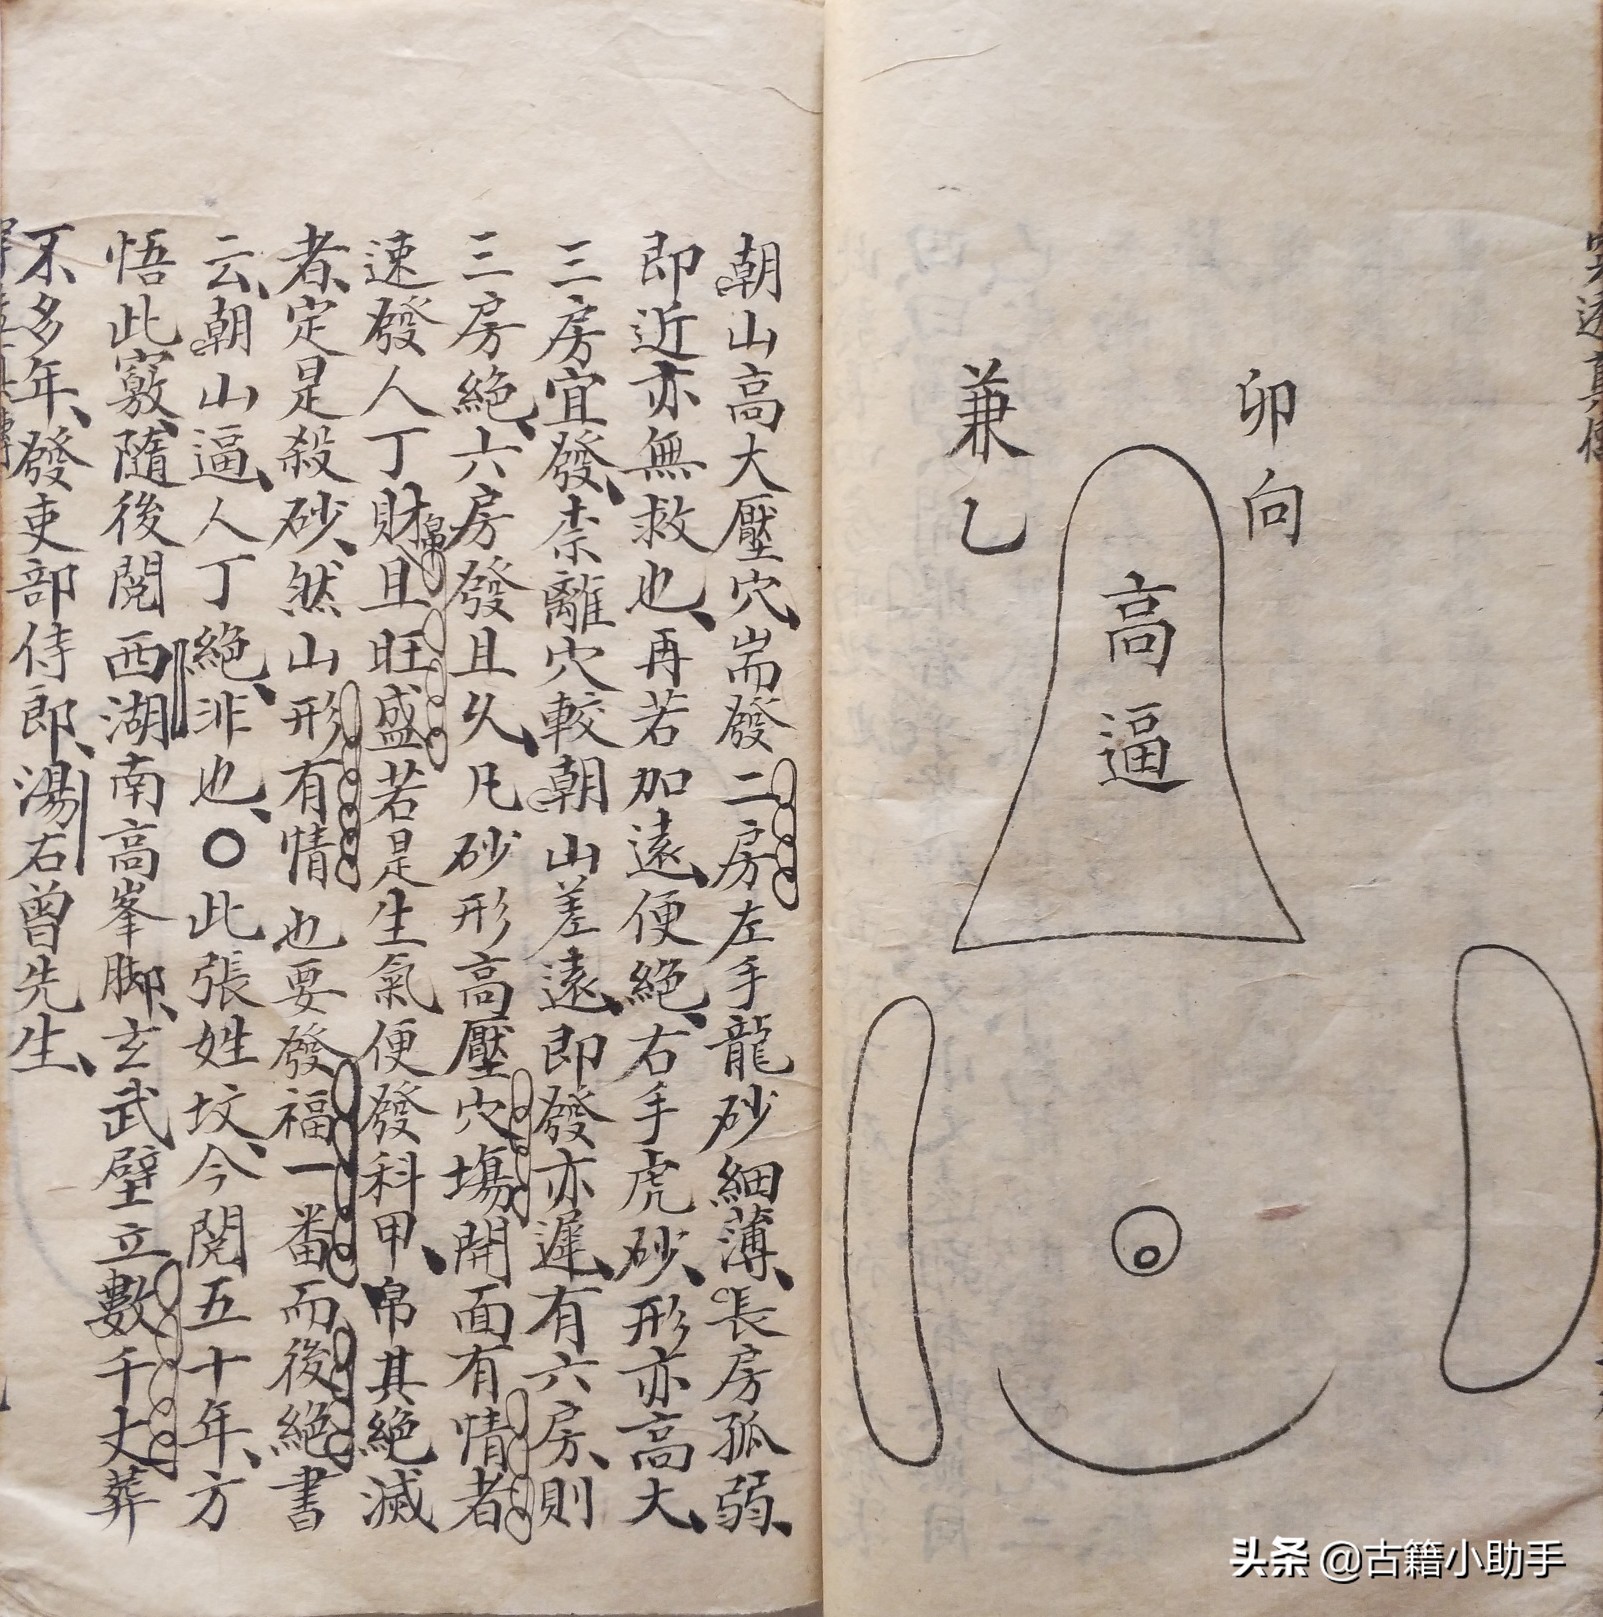 卯向
兼乙
高逼
朝山高大壓穴、耑發二房左手龍砂細薄、長房孤弱、
即近亦無救也、再若加遠、便絕、右手虎砂、形亦高大、
三房宜發、柰離穴較朝山差遠、即發亦遲、有六房、則
三房絕、六房發且久、凡砂形高壓穴塲開面有情者
速發人丁財帛且旺盛若是生氣便發科甲、帛其絕滅
者、定是殺砂、然山形有情也要發福一番而後絕書
云、朝山逼、人丁絕、非也、〇此張姓坟、今閱五十年、方
悟此竅、隨後閱西湖南高峯脚、玄武壁立數千丈葬
不多年、發吏部侍郎、湯右曾先生、
头条 @古籍小助手